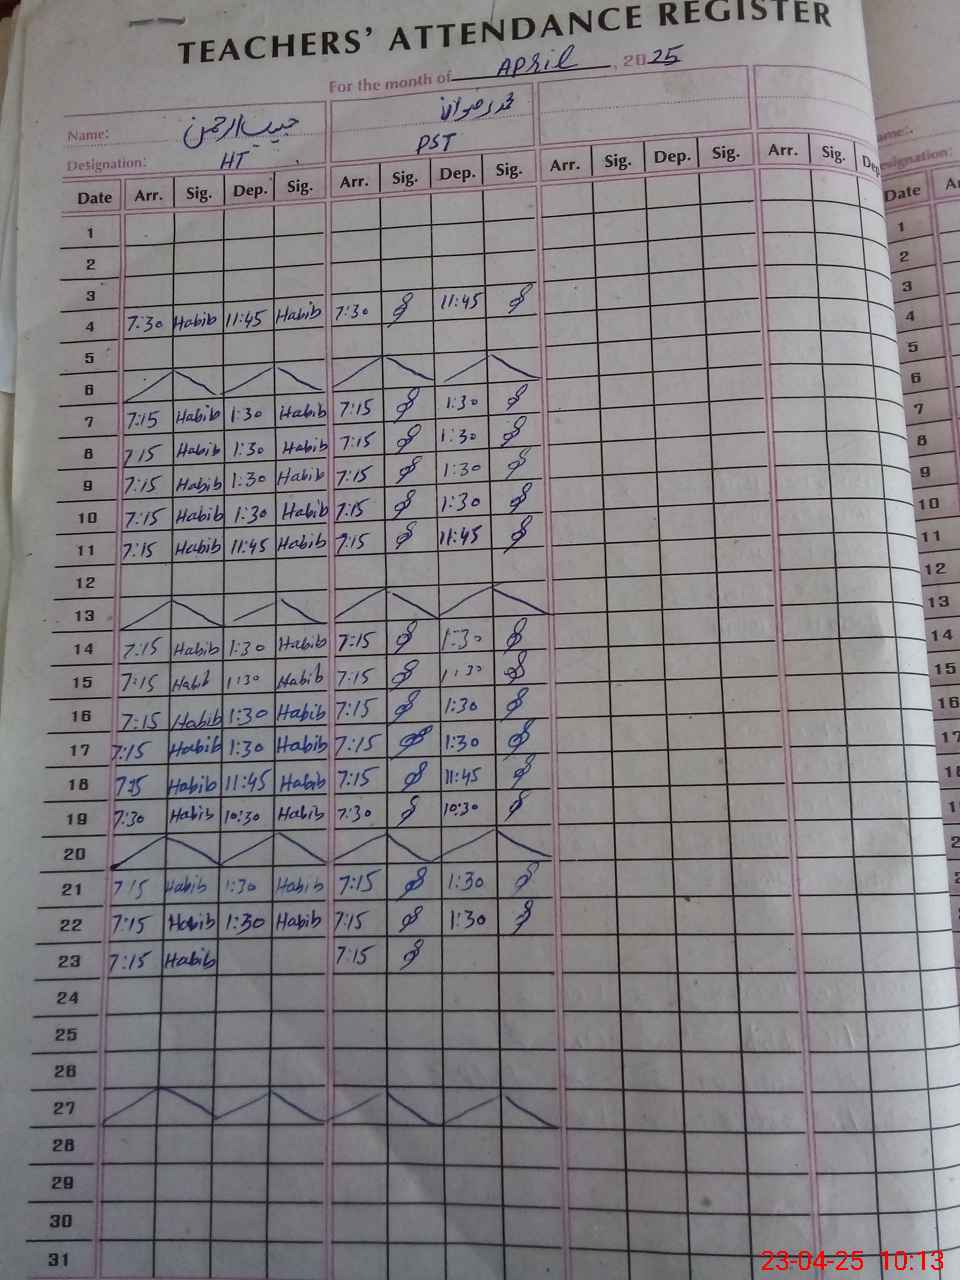 TEACHERS' ATTENDANCE REGISTER
For the month of APRil, 2025
Name: حبیب الرحمن محمد رضوان
Designation: HT PST
Date Arr. Sig. Dep. Sig. Arr. Sig. Dep. Sig. Arr. Sig. Dep. Sig. Arr. Sig. Dep
1
2
3
4 7:30 Habib 11:45 Habib 7:30 11:45
5
6
7 7:15 Habib 1:30 Habib 7:15 1:30
8 7:15 Habib 1:30 Habib 7:15 1:30
9 7:15 Habib 1:30 Habib 7:15 1:30
10 7:15 Habib 1:30 Habib 7:15 1:30
11 7:15 Habib 11:45 Habib 7:15 11:45
12
13
14 7:15 Habib 1:30 Habib 7:15 1:30
15 7:15 Habib 1:30 Habib 7:15 1:30
16 7:15 Habib 1:30 Habib 7:15 1:30
17 7:15 Habib 1:30 Habib 7:15 1:30
18 7:15 Habib 11:45 Habib 7:15 11:45
19 7:30 Habib 10:30 Habib 7:30 10:30
20
21 7:15 Habib 1:30 Habib 7:15 1:30
22 7:15 Habib 1:30 Habib 7:15 1:30
23 7:15 Habib 7:15
24
25
26
27
28
29
30
31
ame:
esignation:
Date
1
2
3
4
5
6
7
8
9
10
11
12
13
14
15
16
17
23-04-25 10:13